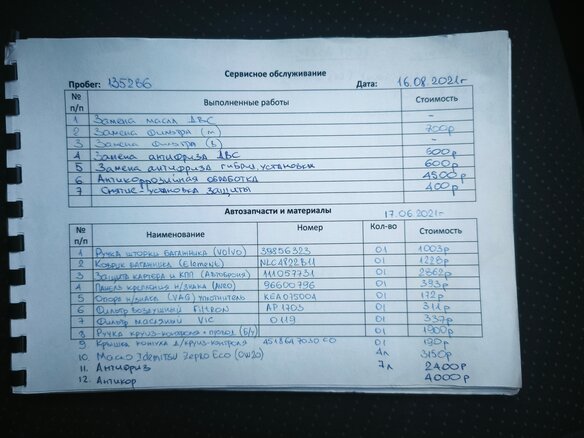 Сервисное обслуживание
Пробег: 135286 Дата: 16.08.2021г
№ п/п Выполненные работы Стоимость
1 Замена масла ДВС -
2 Замена фильтра (м) 700р
3 Замена фильтра (в) -
4 Замена антифриза ДВС 600р
5 Замена антифриза гибрид. установки 600р
6 Антикоррозийная обработка 4500р
7 Снятие-установка защиты 400р
Автозапчасти и материалы 17.06.2021г
№ п/п Наименование Номер Кол-во Стоимость
1 Ручка шторки багажника (Volvo) 39856323 01 1003р
2 Коврик багажника (Element) 01 1228р
3 Защита картера и КПП (Автоброня) 111057731 01 2862р
4 Панель крепления н/знака (AVEO) 96600796 01 393р
5 Опора н/знака (VAG) уплотнитель 01 172р
6 Фильтр воздушный Filtron AP 01 311р
7 Фильтр масляный VIC 0119 01 337р
8 Ручка круиз-контроля + провод (Б/у) 01 1900р
9 Крышка кожуха д/круиз-контроля 01 190р
10. Масло Idemitsu Zepro Eco (0w20) 4л 3150р
11. Антифриз 7л 2400р
12. Антикор 4000р